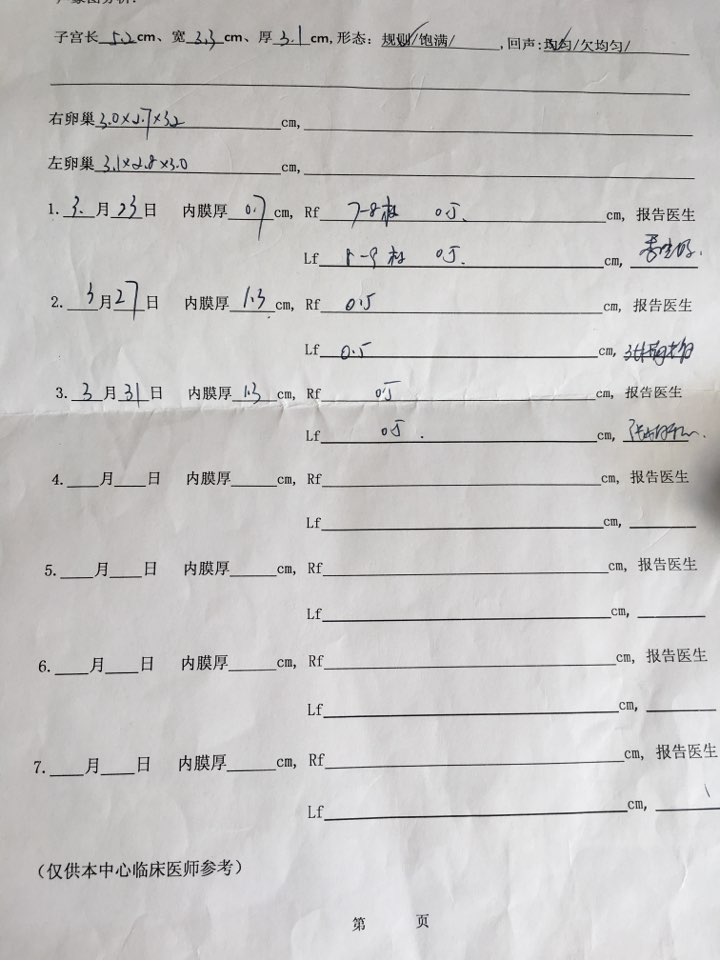 子宫长 5.2 cm、宽 3.3 cm、厚 3.1 cm,形态: 规则/饱满/ ,回声:均匀/欠均匀/
右卵巢 3.0×2.7×3.2 cm,
左卵巢 3.1×2.8×3.0 cm,
1. 3. 月 23 日 内膜厚 0.7 cm, Rf 7-8枚 0.5. cm, 报告医生
Lf 8-9枚 0.5. cm,
2. 3 月 27 日 内膜厚 1.3 cm, Rf 0.5 cm, 报告医生
Lf 0.5 cm,
3. 3 月 31 日 内膜厚 1.3 cm, Rf 0.5 cm, 报告医生
Lf 0.5 . cm,
4. 月 日 内膜厚 cm, Rf cm, 报告医生
Lf cm,
5. 月 日 内膜厚 cm, Rf cm, 报告医生
Lf cm,
6. 月 日 内膜厚 cm, Rf cm, 报告医生
Lf cm,
7. 月 日 内膜厚 cm, Rf cm, 报告医生
Lf cm,
(仅供本中心临床医师参考)
第 页